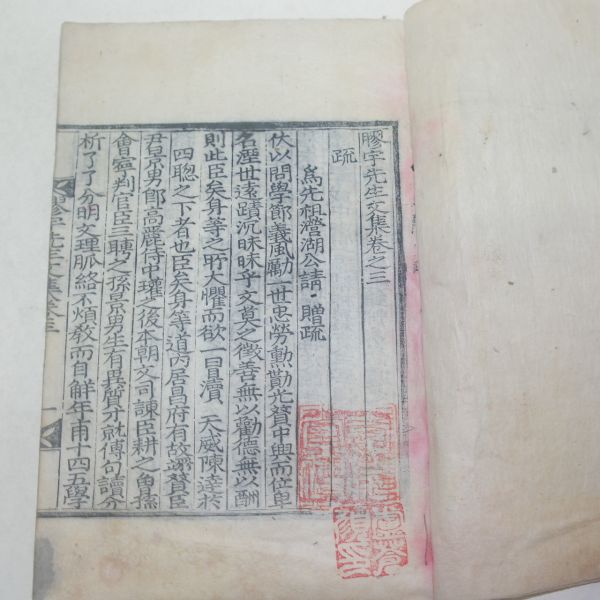 膠宇先生文集卷之三
疏
爲先祖瀯湖公請贈疏
伏以問學節義風勵一世忠勞勳勩光贊中興而位卑
名湮世遠蹟沉昧昧乎文莫之徵善無以勸德無以酬
則此臣矣身等之所大懼而欲一冒瀆 天威陳達於
四聰之下者也臣矣身等道內居昌府有故翊贊臣
君景男卽高麗侍中瓘之後本朝文司諫臣耕之曾孫
會寧判官臣三聘之孫景男生有異質才就傅句讀分
析了了分明文理脈絡不煩教而自解年甫十四五學
膠宇先生文集卷三
一